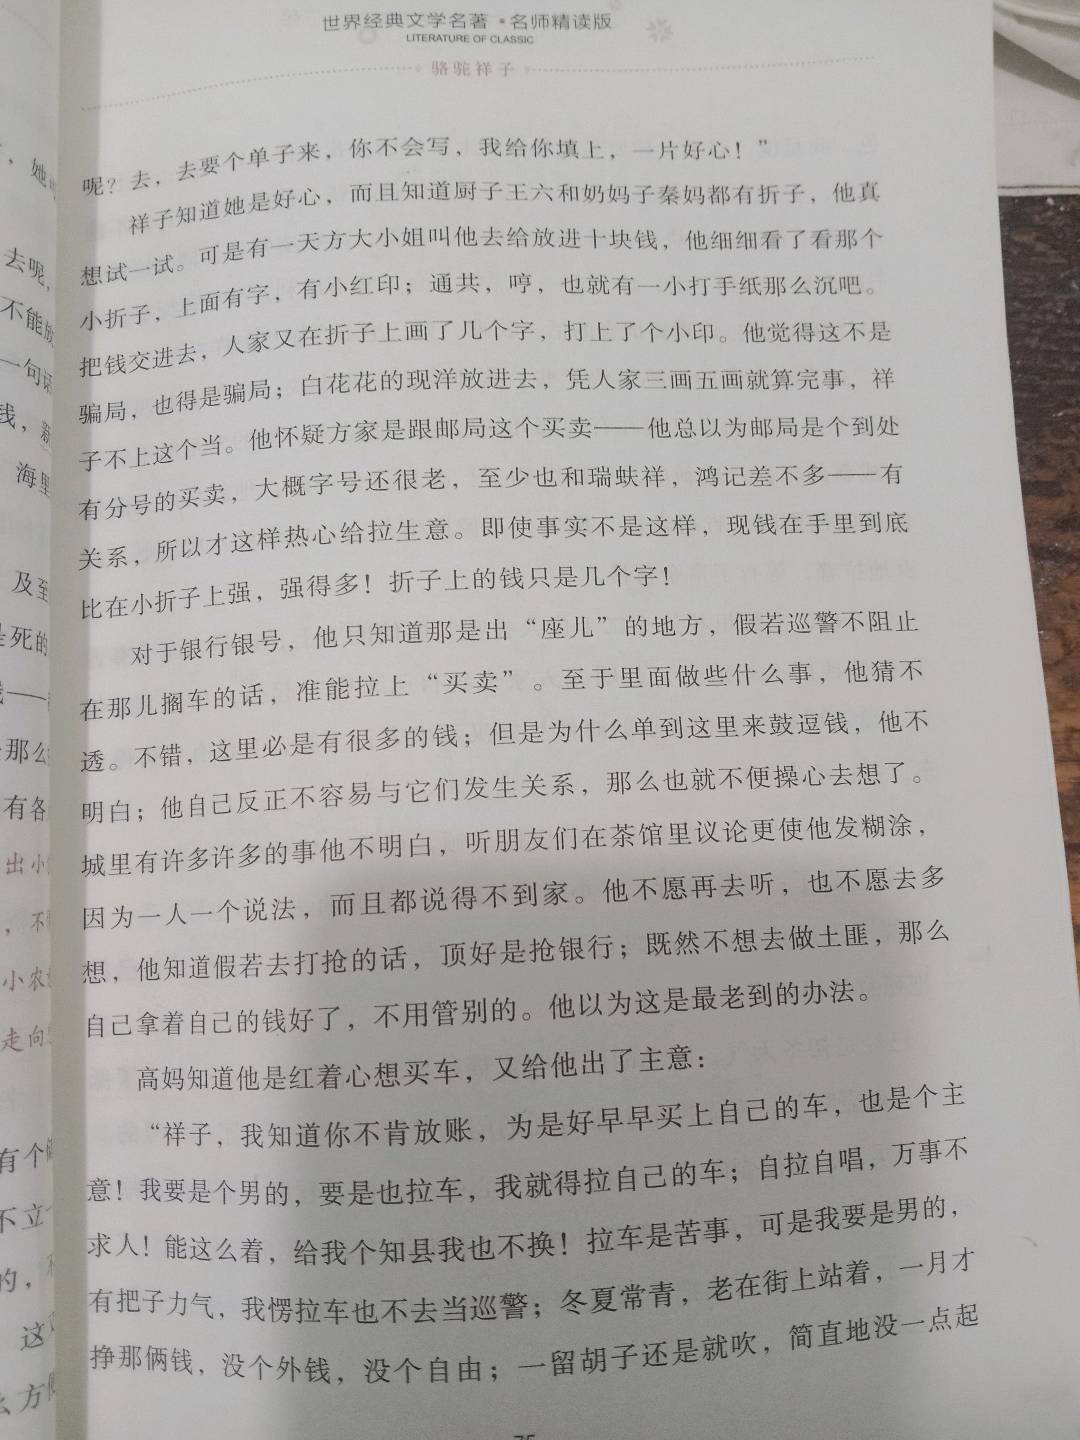 世界经典文学名著·名师精读版
LITERATURE OF CLASSIC
骆驼祥子
呢？去，去要个单子来，你不会写，我给你填上，一片好心！”
祥子知道她是好心，而且知道厨子王六和奶妈子秦妈都有折子，他真
想试一试。可是有一天方大小姐叫他去给放进十块钱，他细细看了看那个
小折子，上面有字，有小红印；通共，哼，也就有一小打手纸那么沉吧。
把钱交进去，人家又在折子上画了几个字，打上了个小印。他觉得这不是
骗局，也得是骗局；白花花的现洋放进去，凭人家三画五画就算完事，祥
子不上这个当。他怀疑方家是跟邮局这个买卖——他总以为邮局是个到处
有分号的买卖，大概字号还很老，至少也和瑞蚨祥，鸿记差不多——有
关系，所以才这样热心给拉生意。即使事实不是这样，现钱在手里到底
比在小折子上强，强得多！折子上的钱只是几个字！
对于银行银号，他只知道那是出“座儿”的地方，假若巡警不阻止
在那儿搁车的话，准能拉上“买卖”。至于里面做些什么事，他猜不
透。不错，这里必是有很多的钱；但是为什么单到这里来鼓逗钱，他不
明白；他自己反正不容易与它们发生关系，那么也就不便操心去想了。
城里有许多许多的事他不明白，听朋友们在茶馆里议论更使他发糊涂，
因为一人一个说法，而且都说得不到家。他不愿再去听，也不愿去多
想，他知道假若去打抢的话，顶好是抢银行；既然不想去做土匪，那么
自己拿着自己的钱好了，不用管别的。他以为这是最老到的办法。
高妈知道他是红着心想买车，又给他出了主意：
“祥子，我知道你不肯放账，为是好早早买上自己的车，也是个主
意！我要是个男的，要是也拉车，我就得拉自己的车；自拉自唱，万事不
求人！能这么着，给我个知县我也不换！拉车是苦事，可是我要是男的，
有把子力气，我愣拉车也不去当巡警；冬夏常青，老在街上站着，一月才
挣那俩钱，没个外钱，没个自由；一留胡子还是就吹，简直地没一点起